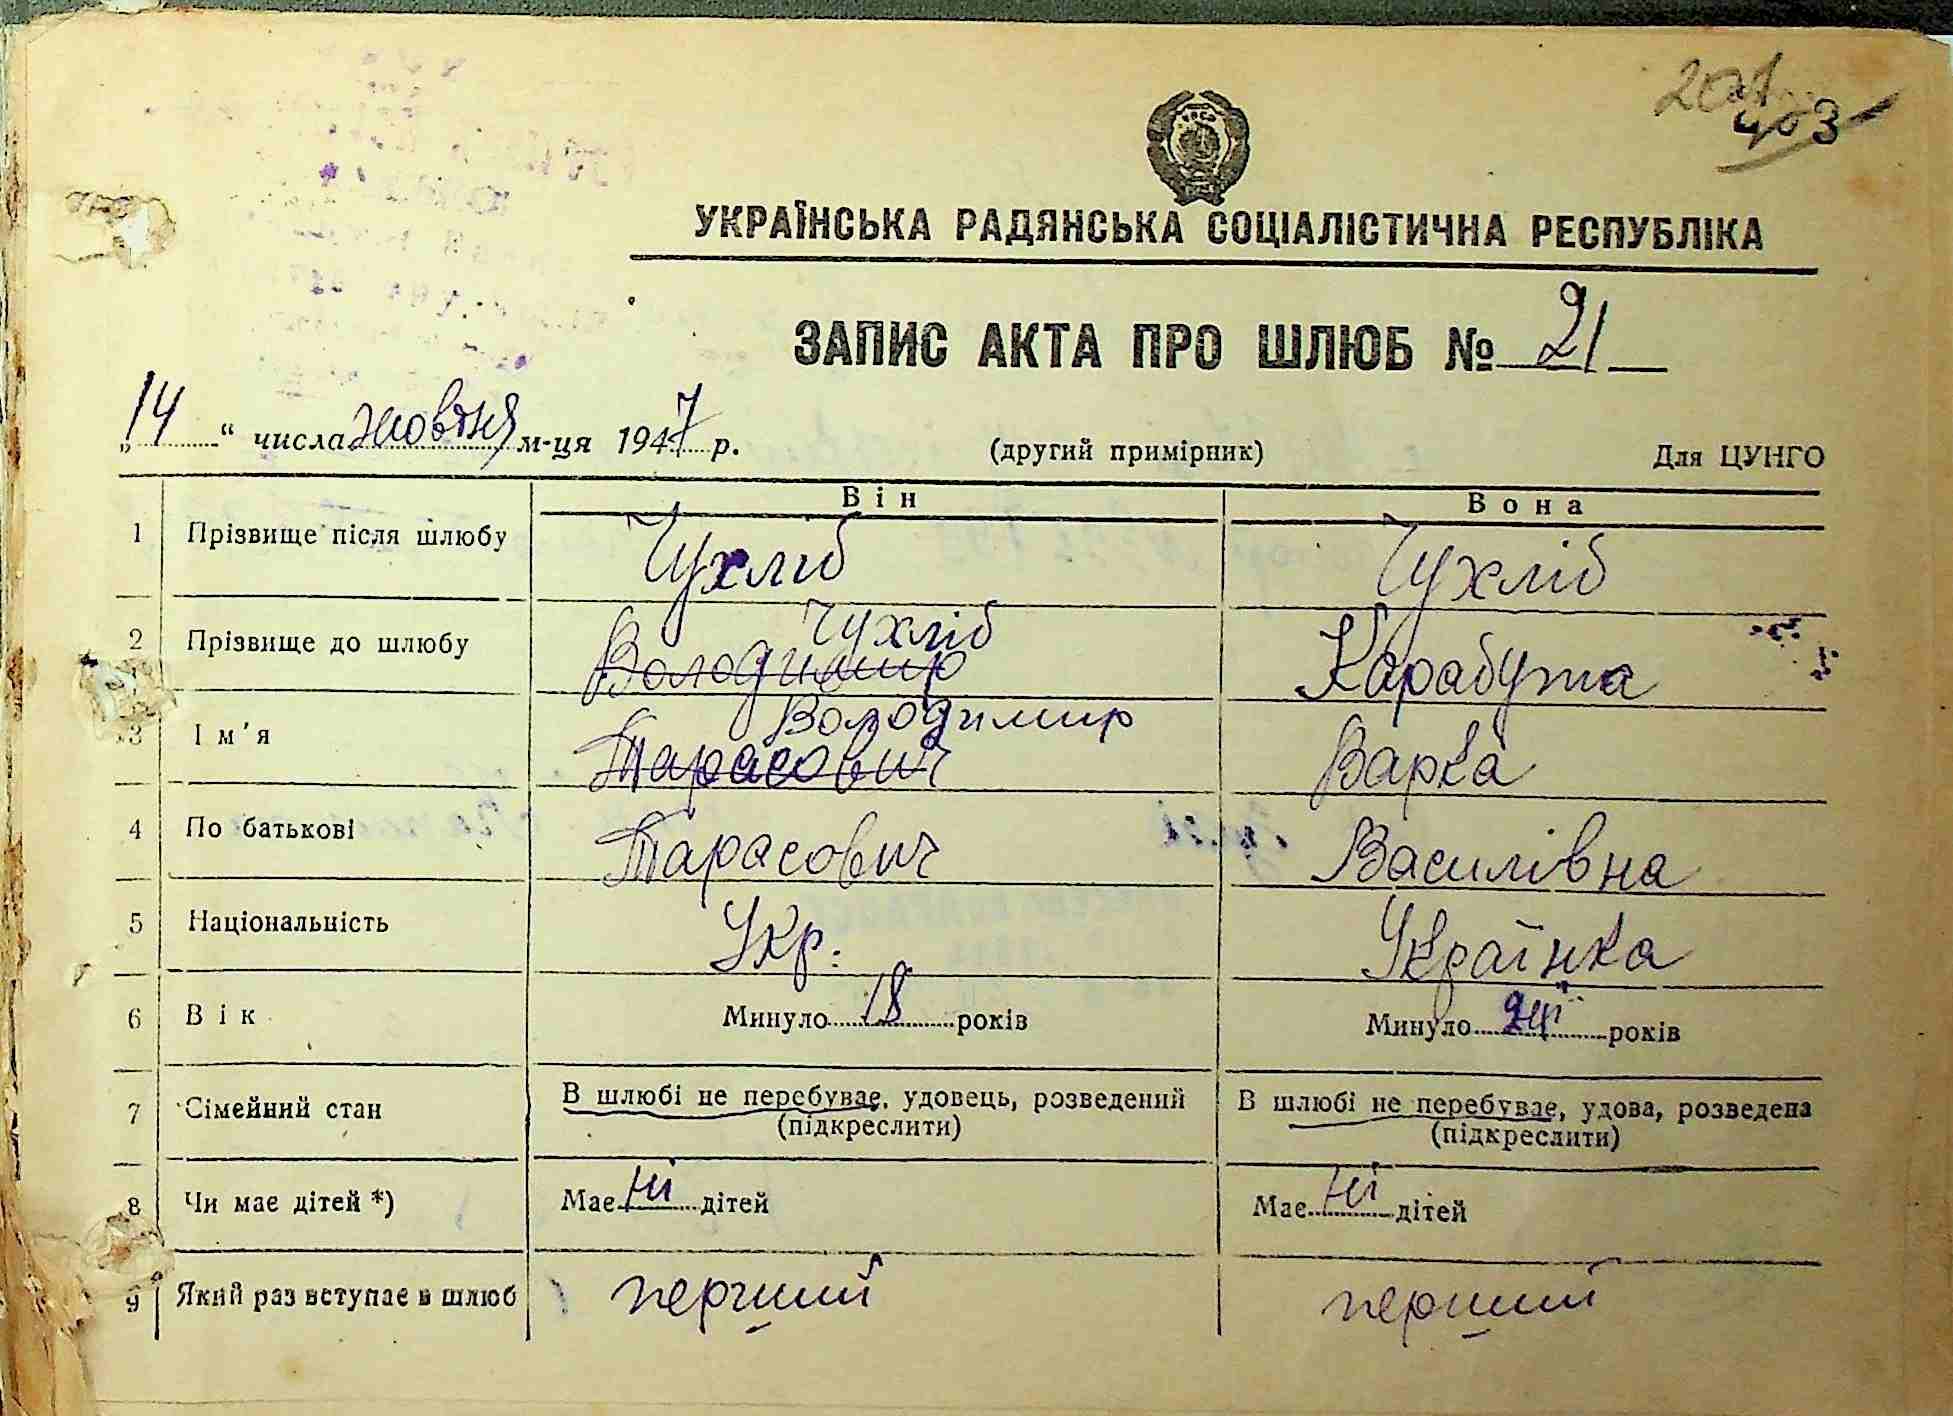 201
403
УКРАЇНСЬКА РАДЯНСЬКА СОЦІАЛІСТИЧНА РЕСПУБЛІКА
ЗАПИС АКТА ПРО ШЛЮБ № 21
„14“ числа жовтня м-ця 1947 р. (другий примірник) Для ЦУНГО
Він Вона
1 Прізвище після шлюбу Чухліб Чухліб
2 Прізвище до шлюбу Чухліб Володимир Карабута
3 Ім'я Володимир Тарасович Варка
4 По батькові Тарасович Василівна
5 Національність Укр. Українка
6 Вік Минуло 18 років Минуло років
7 Сімейний стан В шлюбі не перебуває, удовець, розведений В шлюбі не перебуває, удова, розведена
(підкреслити) (підкреслити)
8 Чи має дітей *) Має ні дітей Має ні дітей
9 Який раз вступає в шлюб перший перший